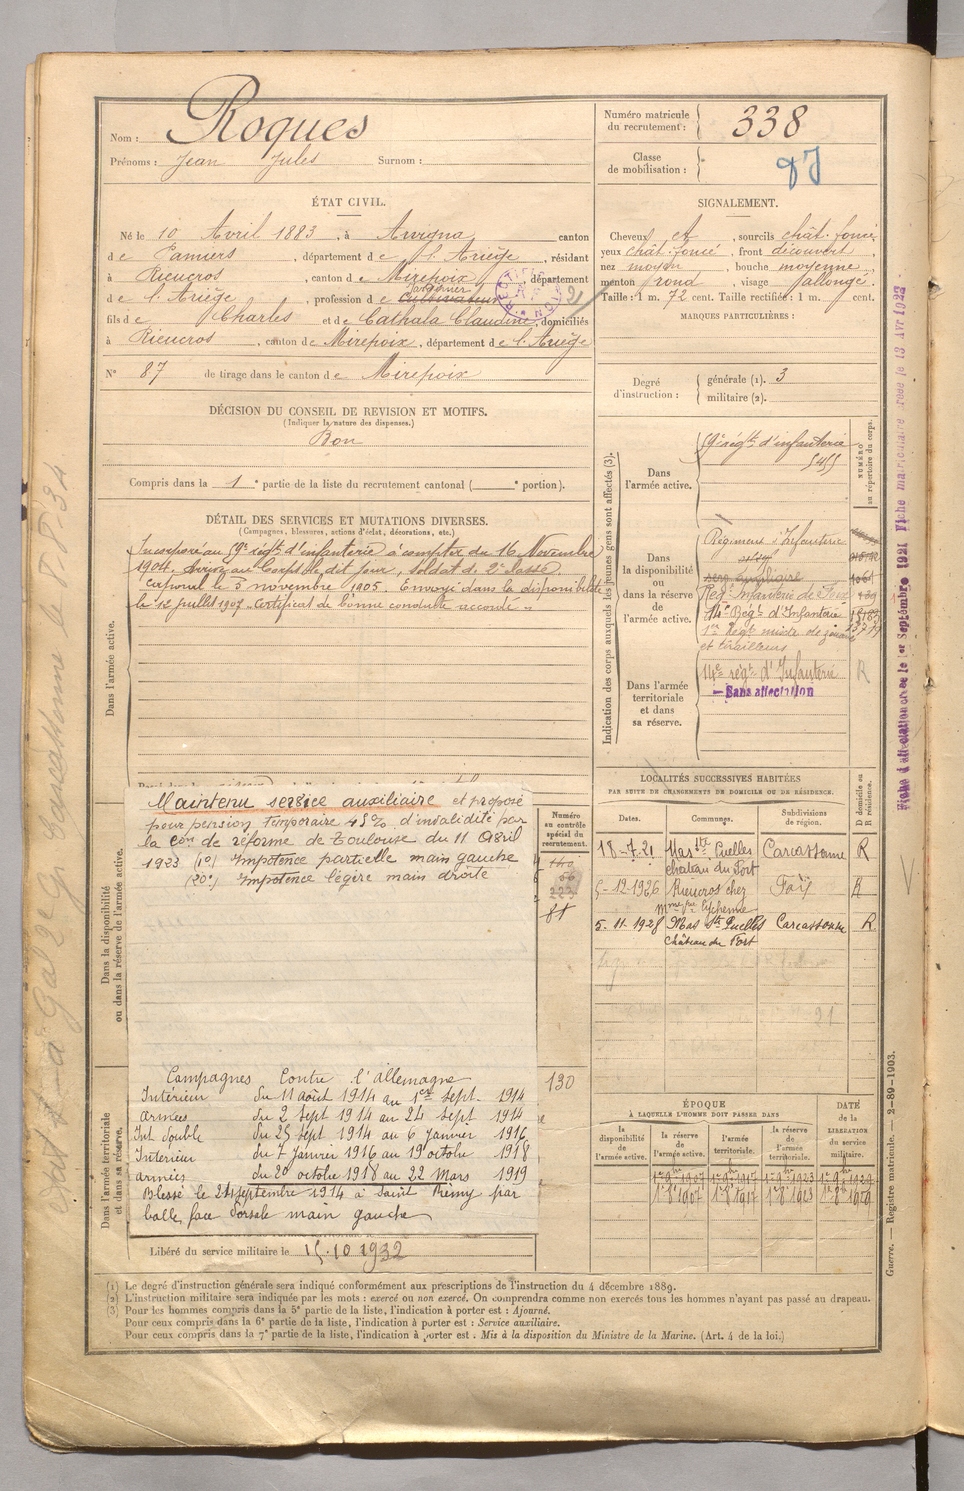 Nom : Roques
Prénoms : Jean Jules Surnom :
Numéro matricule du recrutement : 338
Classe de mobilisation :
ÉTAT CIVIL.
Né le 10 Avril 1883, à Arvigna, canton
de Pamiers, département de l'Ariège, résidant
à Rieucros, canton de Mirepoix, département
de l'Ariège, profession de Cultivateur
fils de Charles et de Cathala Claudine, domiciliés
à Rieucros, canton de Mirepoix, département de l'Ariège
N° 87 de tirage dans le canton de Mirepoix
SIGNALEMENT.
Cheveux et, sourcils chât. foncé
yeux chât. foncé, front découvert,
nez moyen, bouche moyenne,
menton rond, visage allongé.
Taille : 1 m. 72 cent. Taille rectifiée : 1 m. cent.
MARQUES PARTICULIÈRES :
Degré d'instruction : générale (1). 3
militaire (2).
DÉCISION DU CONSEIL DE REVISION ET MOTIFS.
(Indiquer la nature des dispenses.)
Bon
Compris dans la 1e partie de la liste du recrutement cantonal ( e portion).
DÉTAIL DES SERVICES ET MUTATIONS DIVERSES.
(Campagnes, blessures, actions d'éclat, décorations, etc.)
Dans l'armée active.
Incorporé au 59e régt d'infanterie à compter du 16 Novembre
1904. Arrivé au Corps le dit jour, soldat de 2e classe.
Caporal le 5 novembre 1905. Envoyé dans la disponibilité
le 12 juillet 1907. Certificat de bonne conduite accordé.
Indication des corps auxquels les jeunes gens sont affectés (3).
NUMÉRO au répertoire du corps.
Dans l'armée active.
59e régt d'infanterie
5455
Dans la disponibilité ou dans la réserve de l'armée active.
Régiment d'Infanterie
serv auxiliaire
Régt Infanterie de Foix
14e Régt d'Infanterie
1er Régt mixte de zouaves
et tirailleurs
Dans l'armée territoriale et dans sa réserve.
14e régt d'Infanterie R
— Sans affectation
Dans la disponibilité ou dans la réserve de l'armée active.
Maintenu service auxiliaire et proposé
pour pension temporaire 45% d'invalidité par
la Con de réforme de Toulouse du 11 Avril
1923 (1o) Impotence partielle main gauche
(2o) Impotence légère main droite
Numéro au contrôle spécial du recrutement.
223
81
130
LOCALITÉS SUCCESSIVES HABITÉES
PAR SUITE DE CHANGEMENTS DE DOMICILE OU DE RÉSIDENCE.
Dates. Communes. Subdivisions de région. D domicile ou R résidence.
18-7-21 Mas Stes Puelles Carcassonne R
Château du Fort
5-12-1926 Rieucros chez Foix R
5-11-1928 Mas Stes Puelles Carcassonne R
Château du Fort
Dans l'armée territoriale et dans sa réserve.
Campagnes Contre l'allemagne
Intérieur du 11 août 1914 au 1er sept. 1914
armées du 2 Sept 1914 au 24 sept 1914
Int double du 25 sept 1914 au 6 Janvier 1916
Intérieur du 7 Janvier 1916 au 19 octobre 1918
armées du 20 octobre 1918 au 22 Mars 1919
Blessé le 24 septembre 1914 à Saint Remy par
balle, face dorsale main gauche
Libéré du service militaire le 15.10 1932
ÉPOQUE
À LAQUELLE L'HOMME DOIT PASSER DANS
la disponibilité de l'armée active. la réserve de l'armée active. l'armée territoriale. la réserve de l'armée territoriale.
DATE de la LIBÉRATION du service militaire.
1er 9bre 1907 1er 9bre 1917 1er 9bre 1923 1er 9bre 1929
(1) Le degré d'instruction générale sera indiqué conformément aux prescriptions de l'instruction du 4 décembre 1889.
(2) L'instruction militaire sera indiquée par les mots : exercé ou non exercé. On comprendra comme non exercés tous les hommes n'ayant pas passé au drapeau.
(3) Pour les hommes compris dans la 5e partie de la liste, l'indication à porter est : Ajourné.
Pour ceux compris dans la 6e partie de la liste, l'indication à porter est : Service auxiliaire.
Pour ceux compris dans la 7e partie de la liste, l'indication à porter est : Mis à la disposition du Ministre de la Marine. (Art. 4 de la loi.)
Guerre. — Registre matricule. — 2-89-1903.